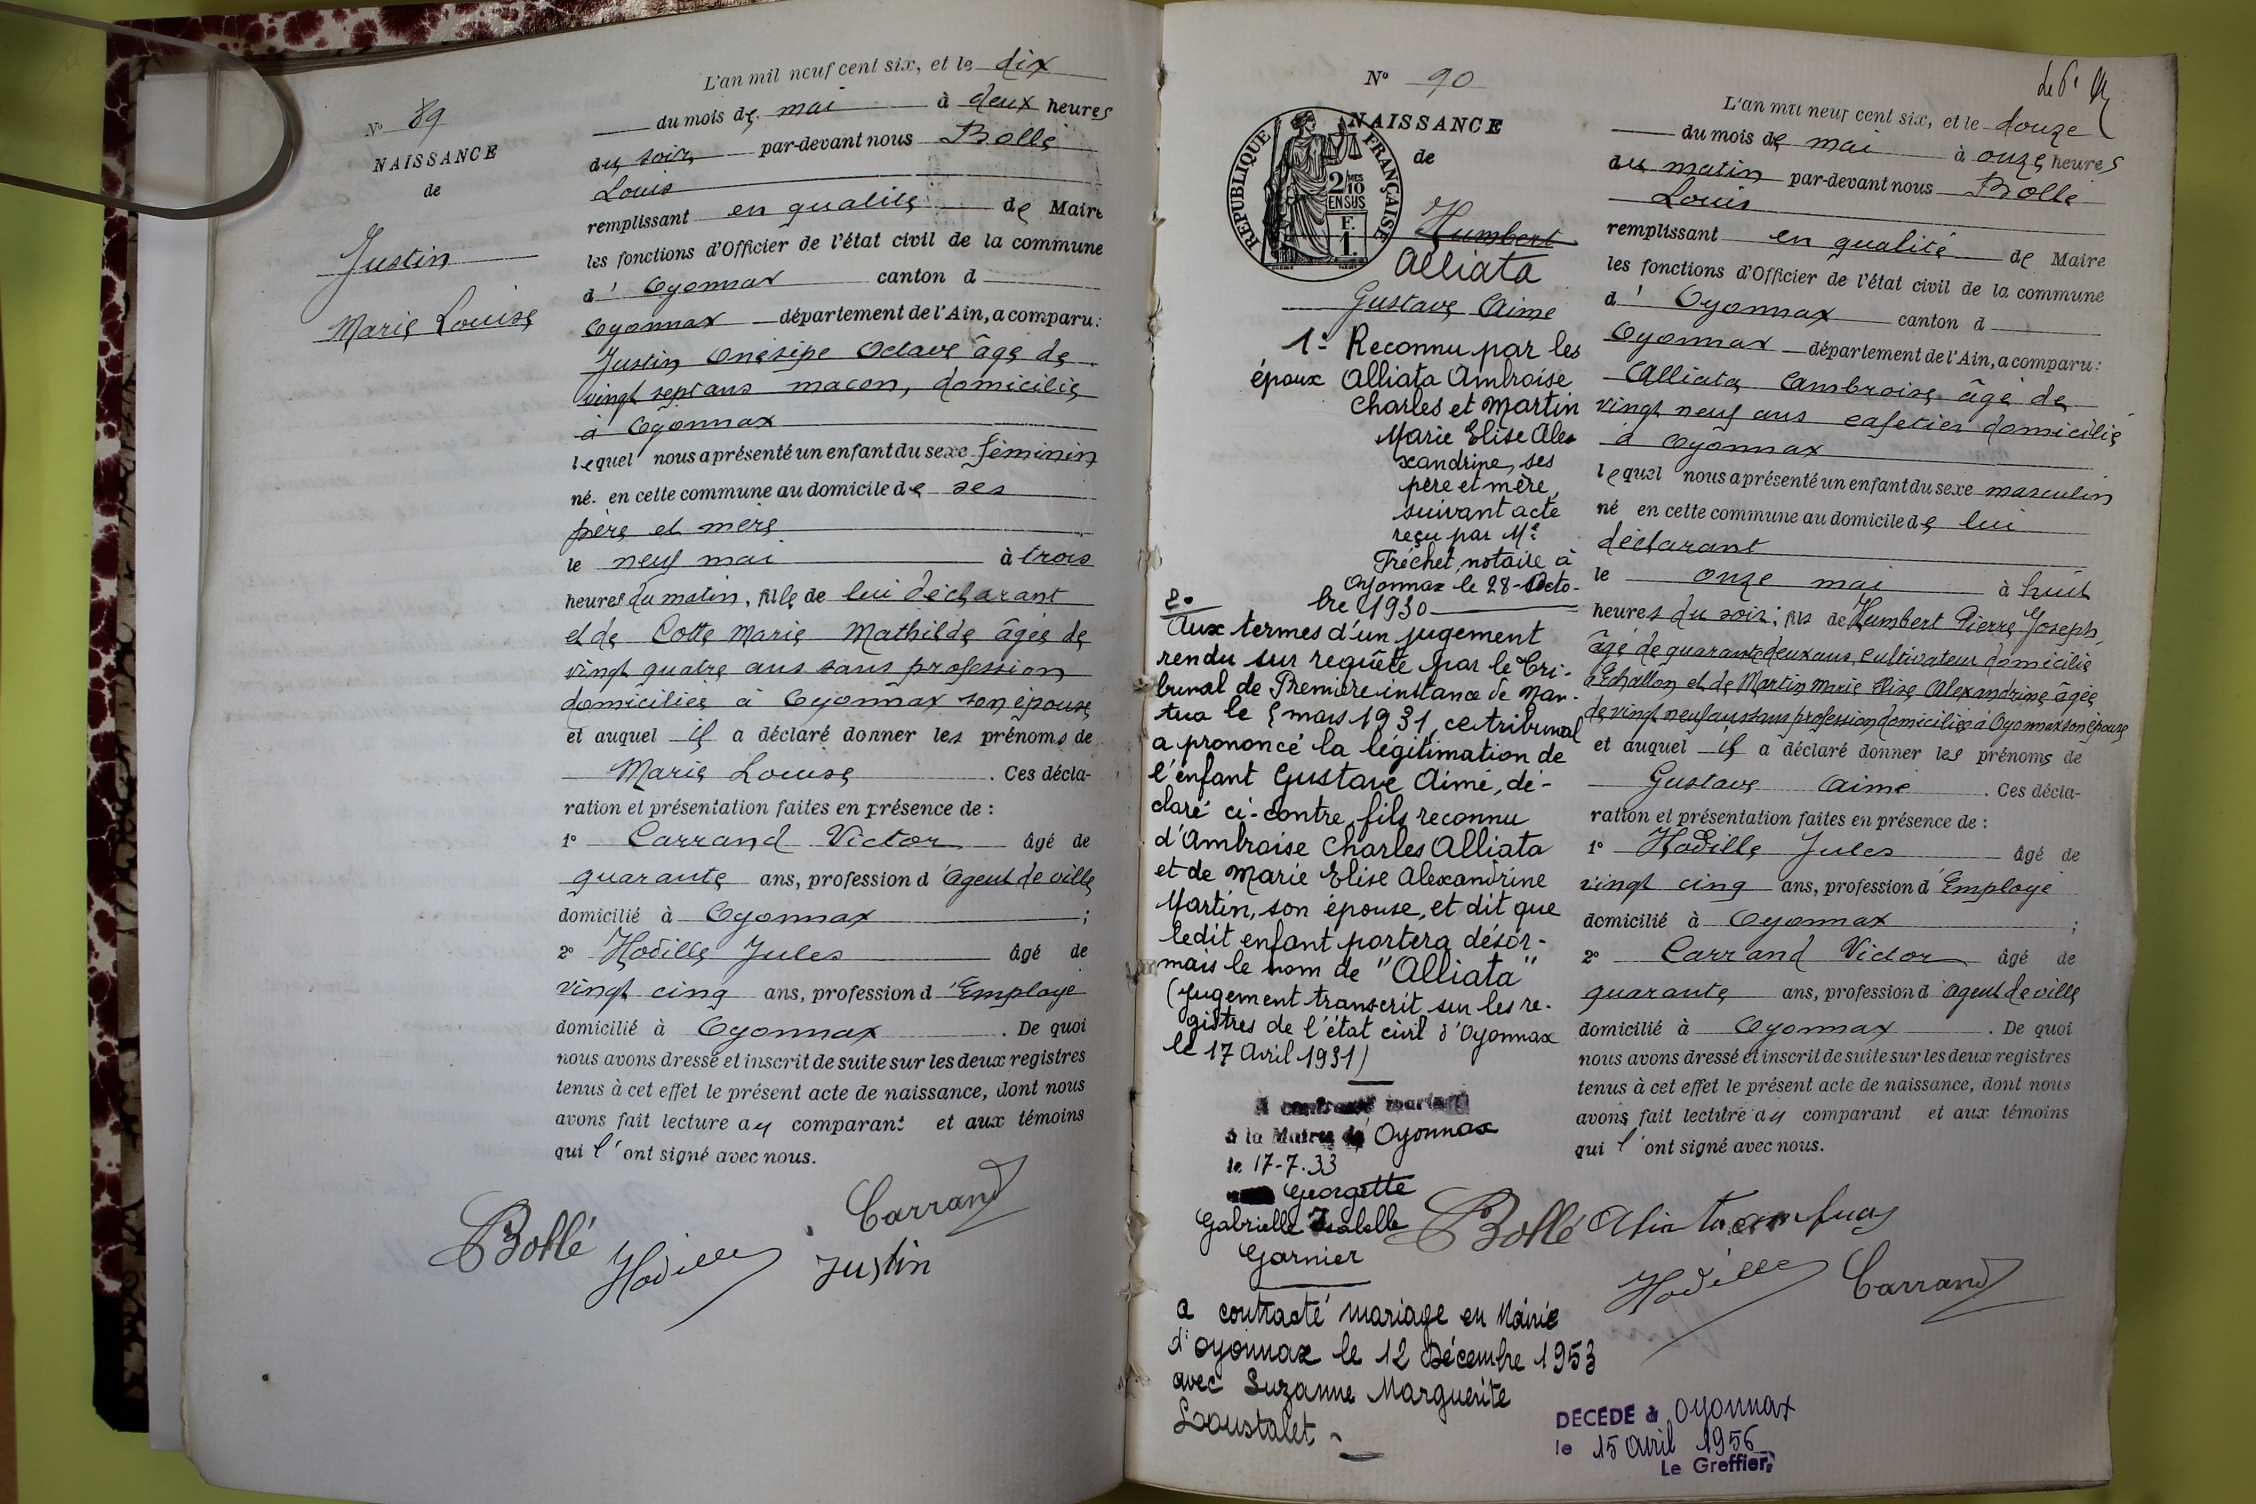 N° 89
NAISSANCE
de
Justin
Marie Louise
L'an mil neuf cent six, et le dix
du mois de mai à deux heures
du soir par-devant nous Bollé
Louis
remplissant en qualité de Maire
les fonctions d'Officier de l'état civil de la commune
d' Oyonnax canton d
Oyonnax département de l'Ain, a comparu :
Justin Onésipe Octave âgé de
vingt sept ans maçon, domicilié
à Oyonnax
lequel nous a présenté un enfant du sexe féminin
né. en cette commune au domicile de ses
père et mère
le neuf mai à trois
heures du matin, fille de lui déclarant
et de Cotte Marie Mathilde âgée de
vingt quatre ans sans profession
domiciliée à Oyonnax son épouse
et auquel il a déclaré donner les prénoms de
Marie Louise . Ces décla-
ration et présentation faites en présence de :
1° Carrand Victor âgé de
quarante ans, profession d'agent de ville
domicilié à Oyonnax ;
2° Hodille Jules âgé de
vingt cinq ans, profession d'Employé
domicilié à Oyonnax . De quoi
nous avons dressé et inscrit de suite sur les deux registres
tenus à cet effet le présent acte de naissance, dont nous
avons fait lecture au comparant et aux témoins
qui l'ont signé avec nous.
Bollé Hodille Justin Carrand
N° 90
NAISSANCE
de
REPUBLIQUE FRANÇAISE
2/10 MES
EN SUS
F.
1.
Humbert
Alliata
Gustave Aimé
1° Reconnu par les
époux Alliata Ambroise
Charles et Martin
Marie Elise Ale-
xandrine, ses
père et mère,
suivant acte
reçu par Me
Fréchet, notaire à
Oyonnax le 28 Octo-
bre 1930
2°
Aux termes d'un jugement
rendu sur requête par le Tri-
bunal de Première instance de Nan-
tua le 5 mars 1931, ce tribunal
a prononcé la légitimation de
l'enfant Gustave Aimé, dé-
claré ci-contre, fils reconnu
d'Ambroise Charles Alliata
et de Marie Elise Alexandrine
Martin, son épouse, et dit que
ledit enfant portera désor-
mais le nom de "Alliata"
(Jugement transcrit sur les re-
gistres de l'état civil d'Oyonnax
le 17 Avril 1931)
A contracté mariage
à la Mairie de Oyonnax
le 17-7-33
Georgette
Gabrielle Isabelle
Garnier
a contracté mariage en Mairie
d'Oyonnax le 12 Décembre 1953
avec Suzanne Marguerite
Loustalet
L'an mil neuf cent six, et le douze
du mois de mai à onze heures
du matin par-devant nous Bollé
Louis
remplissant en qualité de Maire
les fonctions d'Officier de l'état civil de la commune
d' Oyonnax canton d
Oyonnax département de l'Ain, a comparu :
Alliata Ambroise âgé de
vingt neuf ans cafetier domicilié
à Oyonnax
lequel nous a présenté un enfant du sexe masculin
né en cette commune au domicile de lui
déclarant
le onze mai à huit
heures du soir ; fils de Humbert Pierre Joseph,
âgé de quarante deux ans, cultivateur domicilié
à Echallon et de Martin Marie Elise Alexandrine âgée
de vingt neuf ans sans profession domiciliée à Oyonnax son épouse
et auquel il a déclaré donner les prénoms de
Gustave Aimé . Ces décla-
ration et présentation faites en présence de :
1° Hodille Jules âgé de
vingt cinq ans, profession d'Employé
domicilié à Oyonnax ;
2° Carrand Victor âgé de
quarante ans, profession d'agent de ville
domicilié à Oyonnax . De quoi
nous avons dressé et inscrit de suite sur les deux registres
tenus à cet effet le présent acte de naissance, dont nous
avons fait lecture au comparant et aux témoins
qui l'ont signé avec nous.
Bollé
Hodille Carrand
DÉCÉDÉ à Oyonnax
le 15 Avril 1956
Le Greffier,